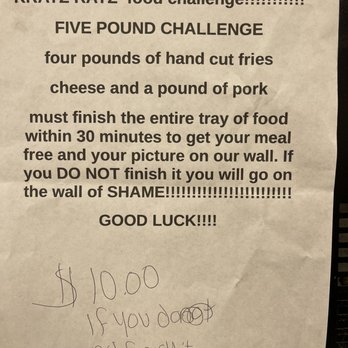 food challenge!!!!!!!!!!!
FIVE POUND CHALLENGE
four pounds of hand cut fries
cheese and a pound of pork
must finish the entire tray of food
within 30 minutes to get your meal
free and your picture on our wall. If
you DO NOT finish it you will go on
the wall of SHAME!!!!!!!!!!!!!!!!!!!!!!!!
GOOD LUCK!!!!
$10.00
if you